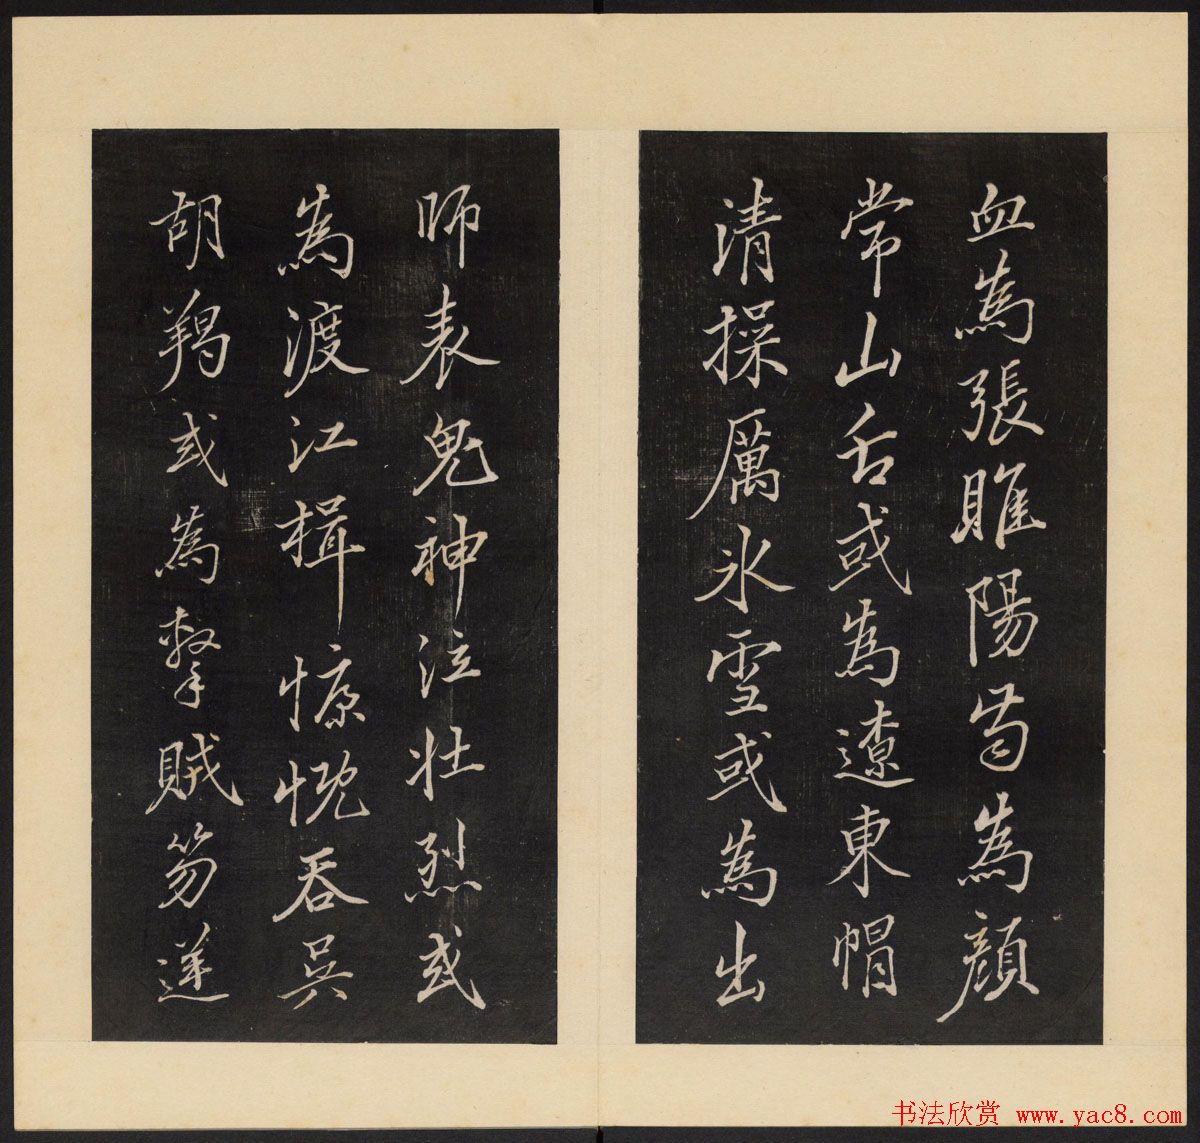 血為張睢陽齒為顏
常山舌或為遼東帽
清操厲氷雪或為出
師表鬼神泣壯烈或
為渡江楫慷慨吞吳
胡羯或為擊賊笏逆
书法欣赏 www.yac8.com